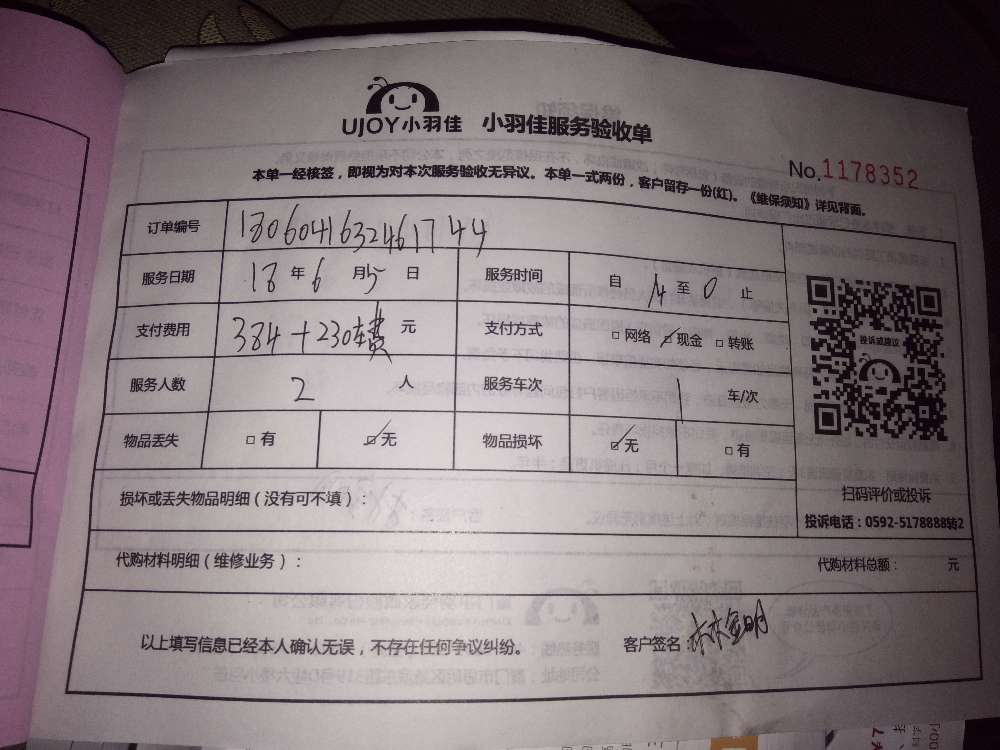 UJOY小羽佳 小羽佳服务验收单
No.1178352
本单一经核签，即视为对本次服务验收无异议。本单一式两份，客户留存一份(红)。《维保须知》详见背面。
订单编号 1806041632461744
服务日期 18 年 6 月 5 日 服务时间 自 14 至 0 止
支付费用 384+230车费 元 支付方式 □ 网络 ☑ 现金 □ 转账
服务人数 2 人 服务车次 1 车/次
物品丢失 □ 有 ☑ 无 物品损坏 ☑ 无 □ 有
投诉或建议
扫码评价或投诉
投诉电话：0592-5178888转2
损坏或丢失物品明细（没有可不填）：
代购材料明细（维修业务）： 代购材料总额： 元
以上填写信息已经本人确认无误，不存在任何争议纠纷。 客户签名：林金明